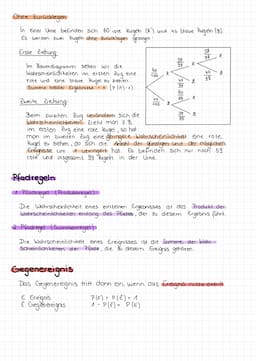 Ohne Zurücklegen
In einer Urne befinden sich 60 rote Kugeln (R) und 40 blaue Kugeln (B).
Es werden zwei Kugeln ohne Zurücklegen gezogen.
Erste Ziehung:
Im Baumdiagramm sehen wir die
Wahrscheinlichkeiten im ersten Zug eine
rote und eine blaue Kugel zu ziehen.
Summe beider Ergebnisse = 1
Zweite Ziehung:
Beim zweiten Zug verändern sich die
Wahrscheinlichkeiten! Zieht man z.B.
im ersten Zug eine rote Kugel, so hat
man im zweiten Zug eine geringere Wahrscheinlichkeit eine rote
Kugel zu ziehen, da sich die Anzahl der günstigen und der möglichen
Ergebnisse um 1 verringert hat. Es befinden sich nur noch 59
rote und insgesamt 99 Kugeln in der Urne.
Pfadregeln
1. Pfadregel (Produktregel)
Die Wahrscheinlichkeit eines einzelnen Ergebnisses ist das Produkt der
Wahrscheinlichkeiten entlang des Pfades, der zu diesem Ergebnis führt.
2. Pfadregel (Summenregel)
Die Wahrscheinlichkeit eines Ereignisses ist die Summe der Wahr-
scheinlichkeiten der Pfade, die zu diesem Ereignis gehören.
Gegenereignis
Das Gegenereignis tritt dann ein, wenn das Ereignis nicht eintritt
E: Ereignis P(E) + P(Ē) = 1
Ē: Gegenereignis 1 - P(Ē) = P(E)